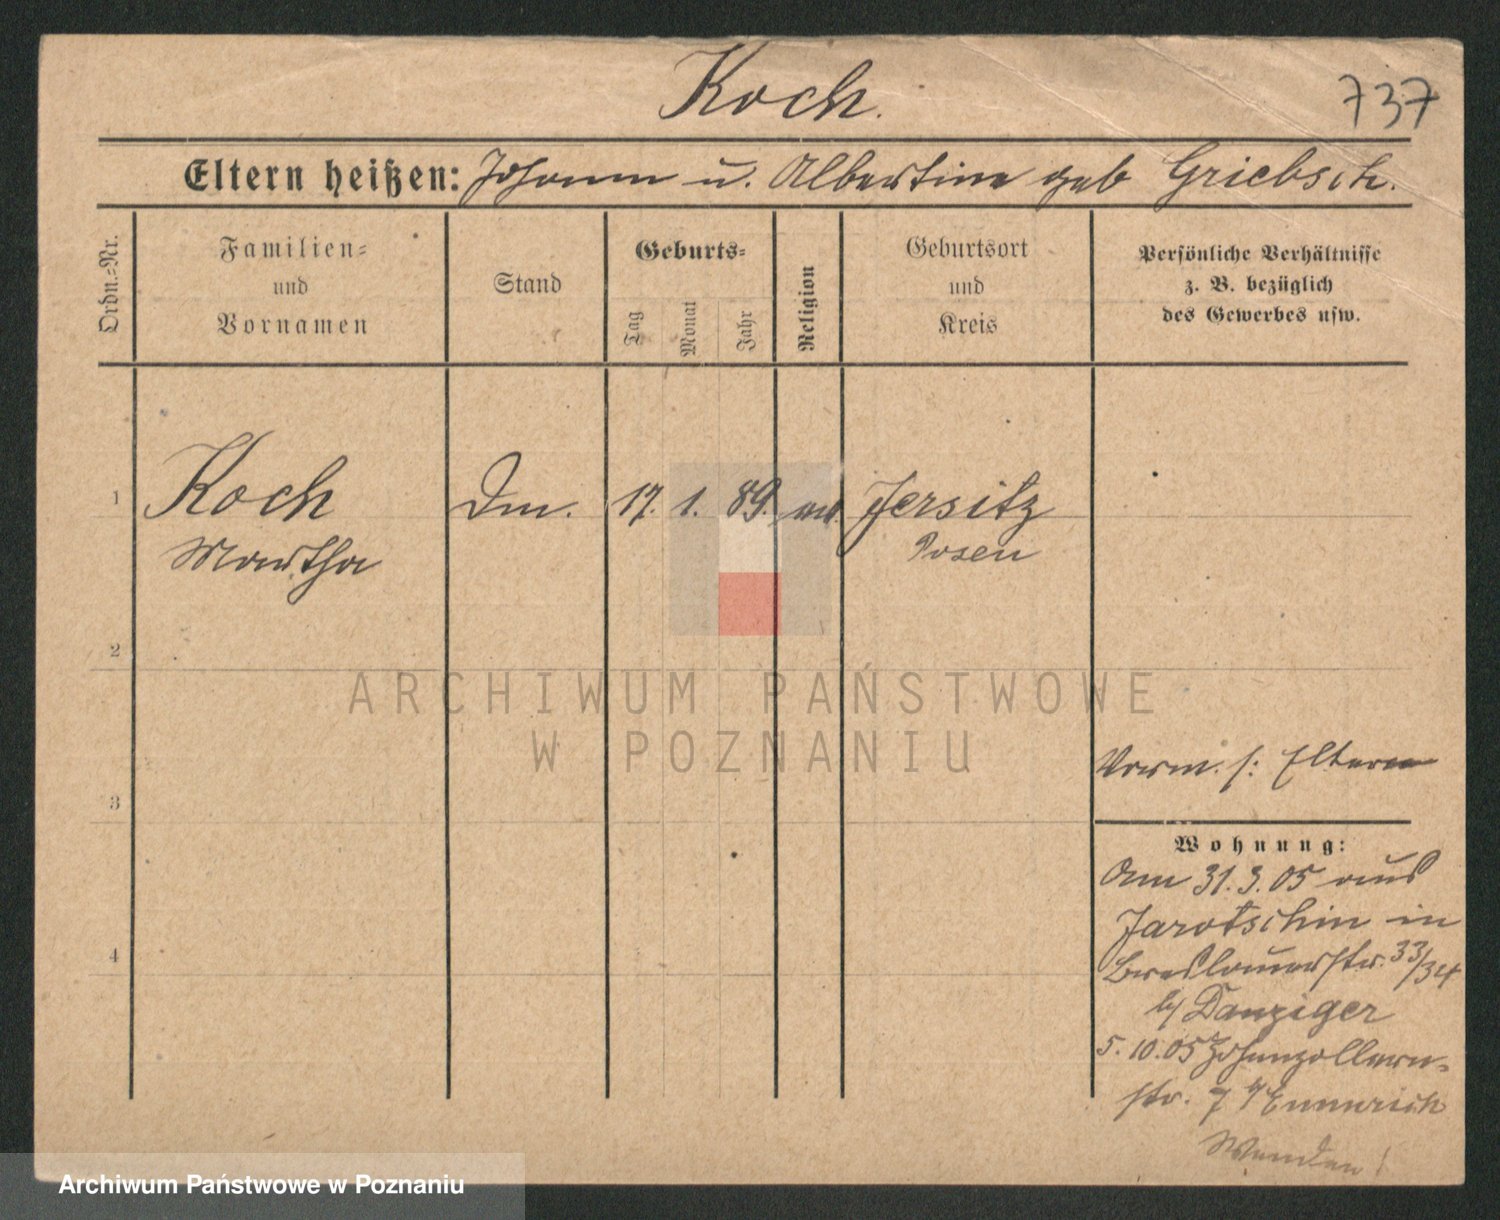 Koch.
737
Eltern heißen: Johann u. Albertine geb Griebsch.
Ordn.=Nr.
Familien=
und
Vornamen
Stand
Geburts=
Tag
Monat
Jahr
Religion
Geburtsort
und
Kreis
Persönliche Verhältnisse
z. B. bezüglich
des Gewerbes usw.
1
Koch
Martha
17. 1. 89.
Jersitz
Posen
2
ARCHIWUM PAŃSTWOWE
W POZNANIU
3
Eltern
Wohnung:
Am 31.3.05 aus
Jarotschin in
Breslauerstr. 33/34
b/ Danziger
5.10.05 Hohenzollern-
str. 7 Emmerich
Wenden!
4
Archiwum Państwowe w Poznaniu